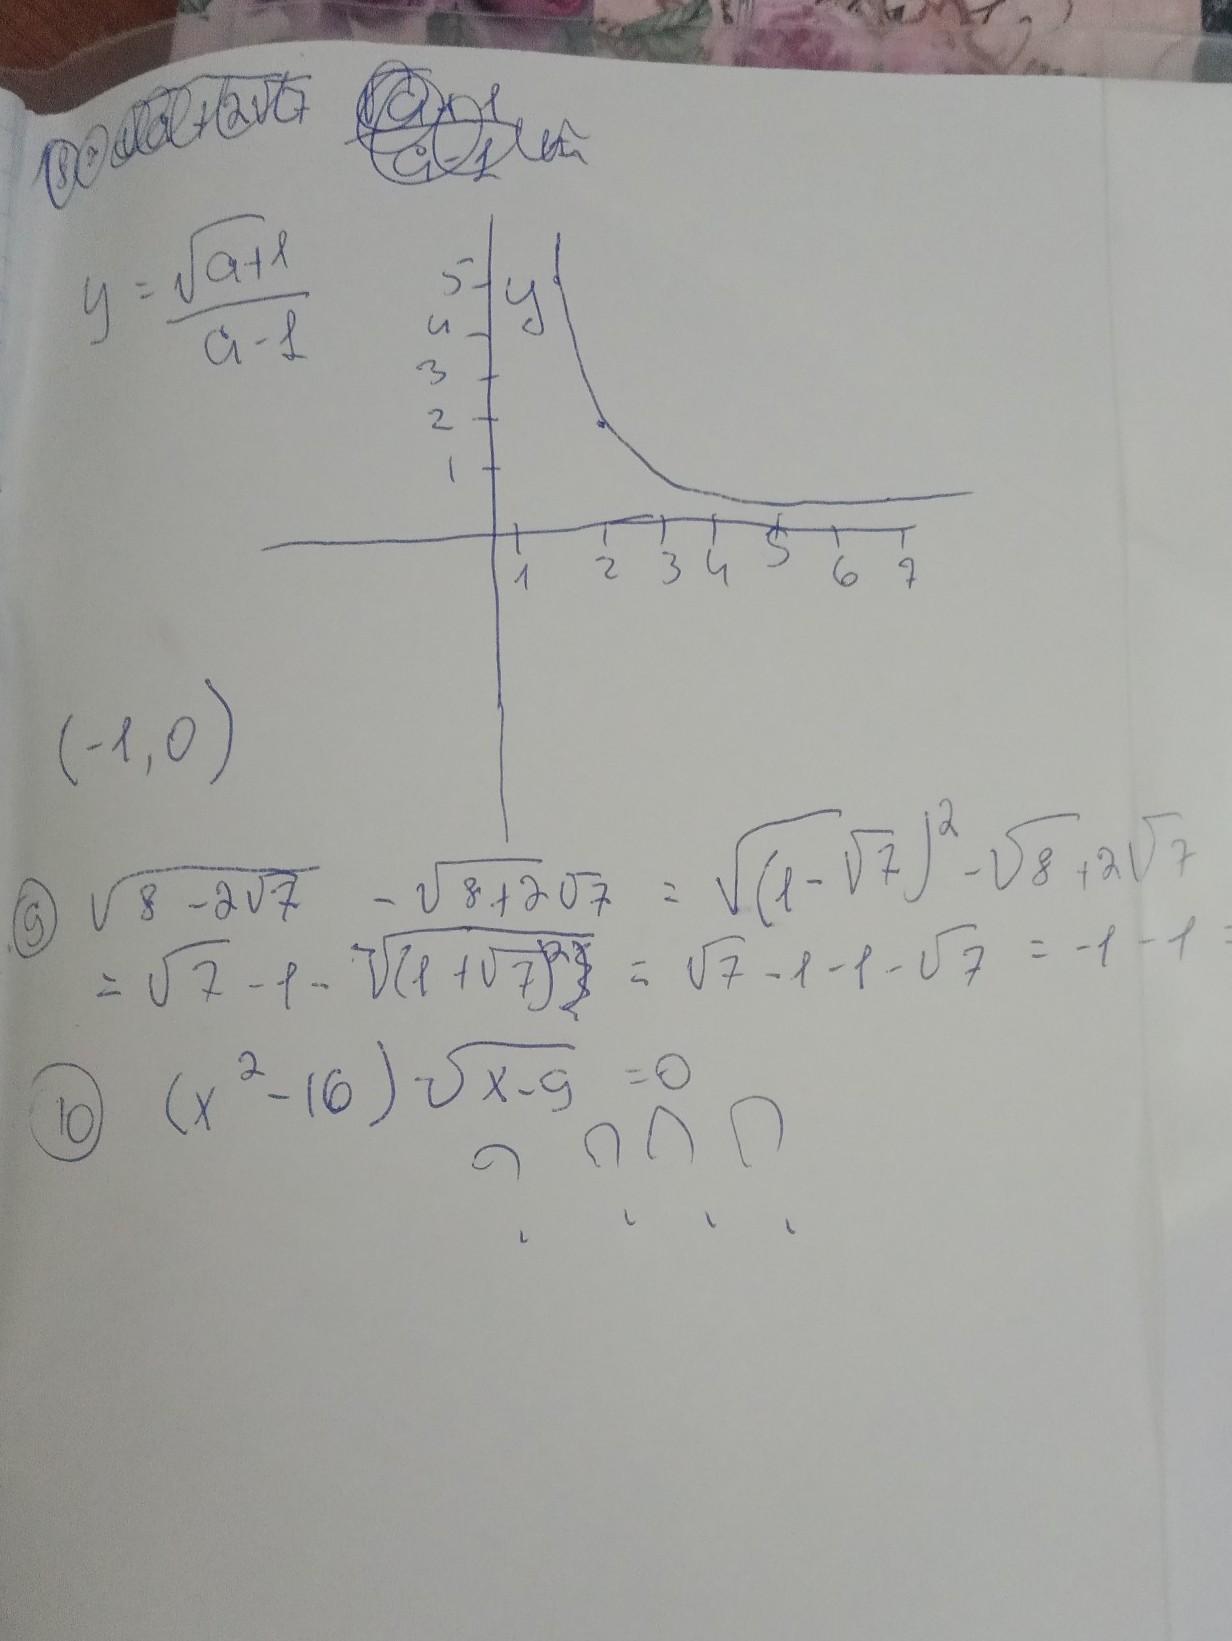 y = √a+1 / a-1
y
5
4
3
2
1
1 2 3 4 5 6 7
(-1, 0)
9 √8-2√7 - √8+2√7 = √(1-√7)² - √8+2√7
= √7 - 1 - √(1+√7)² = √7 - 1 - 1 - √7 = -1 - 1 =
10 (x² - 16) √x-9 = 0